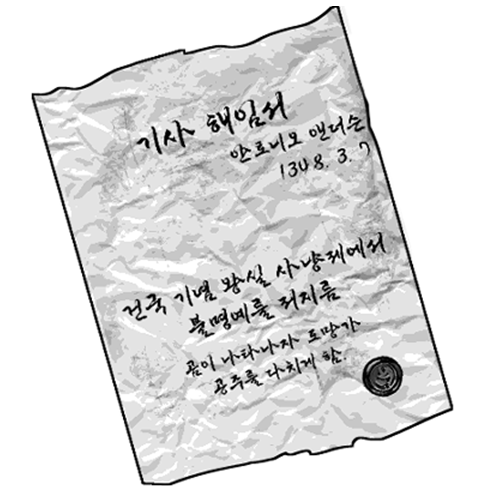 기사 해임서
안토니오 앤더슨
1348. 3. 7
건국 기념 왕실 사냥제에서
불명예를 저지름
곰이 나타나자 도망가
공주를 다치게 함.